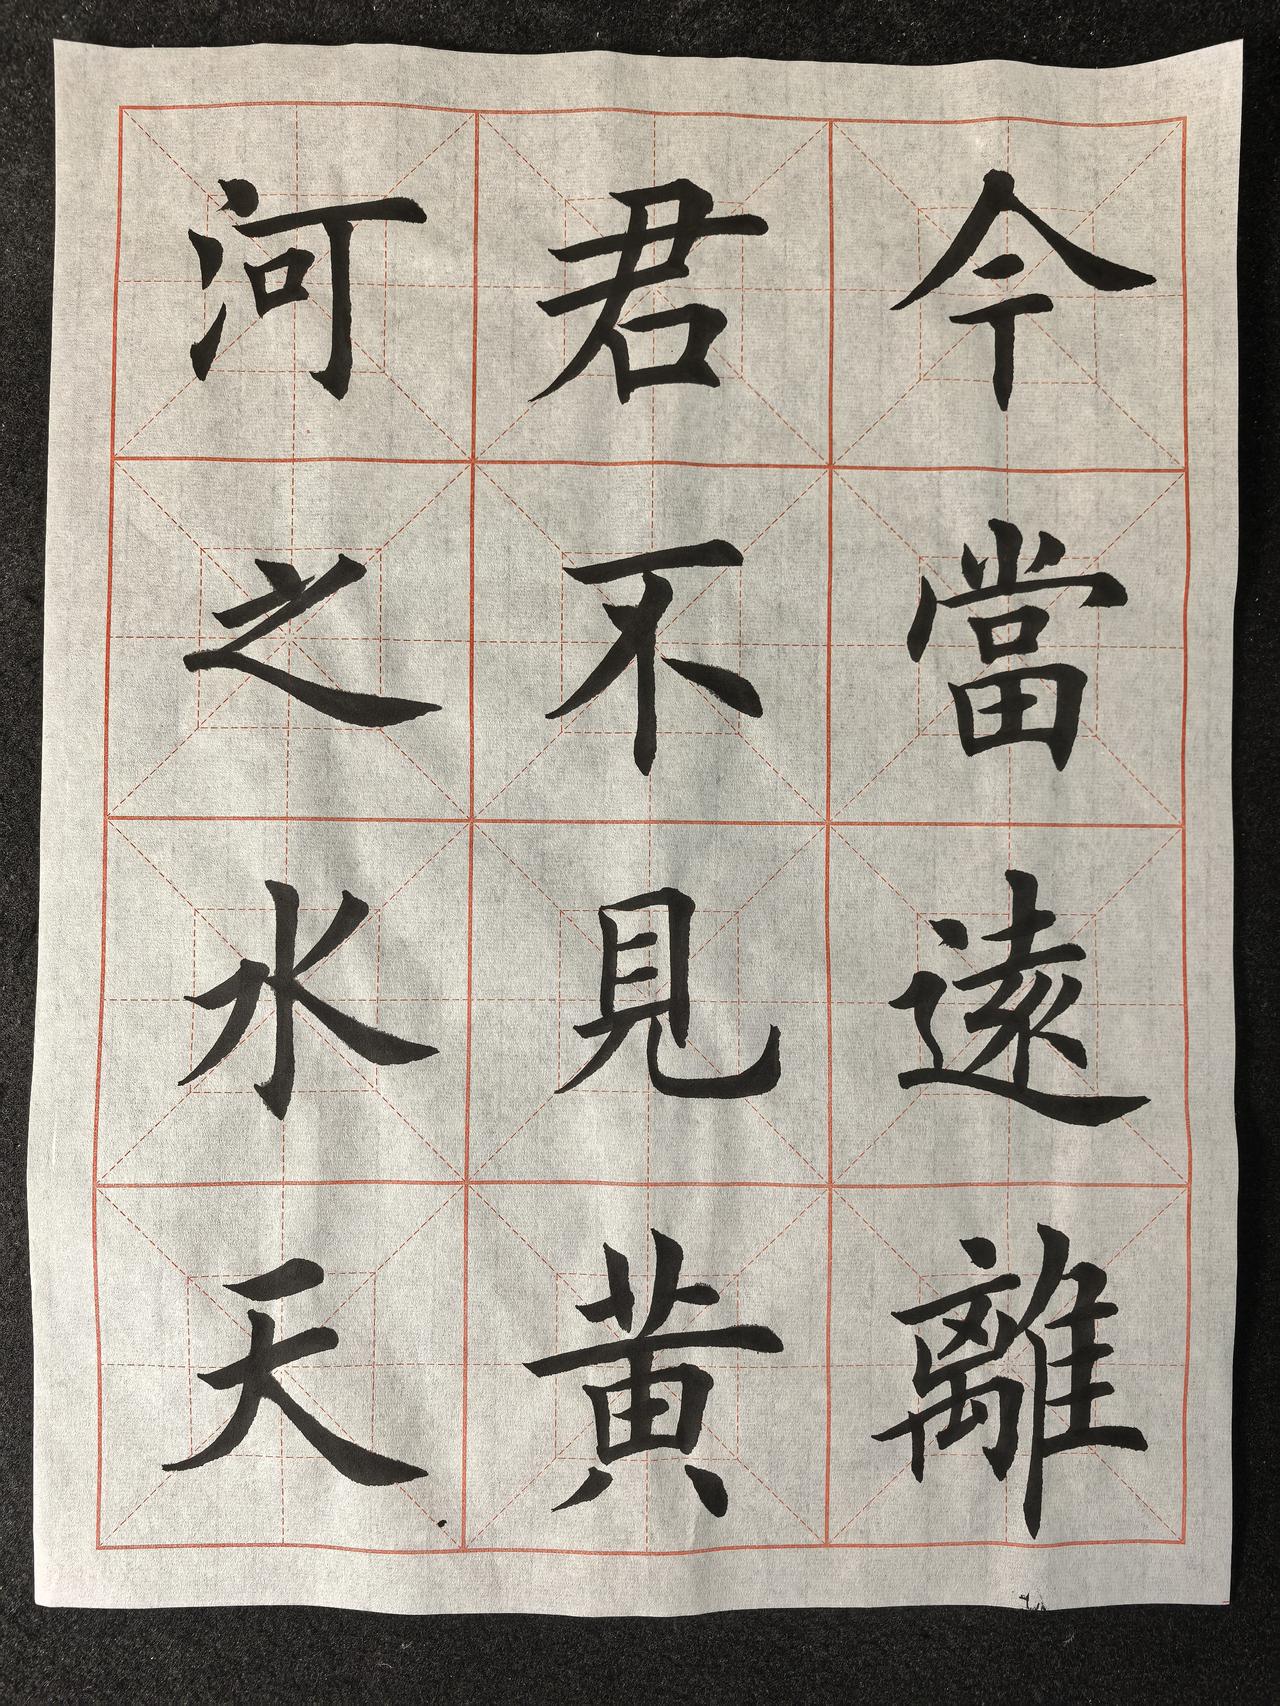 今當遠離
君不見黄
河之水天